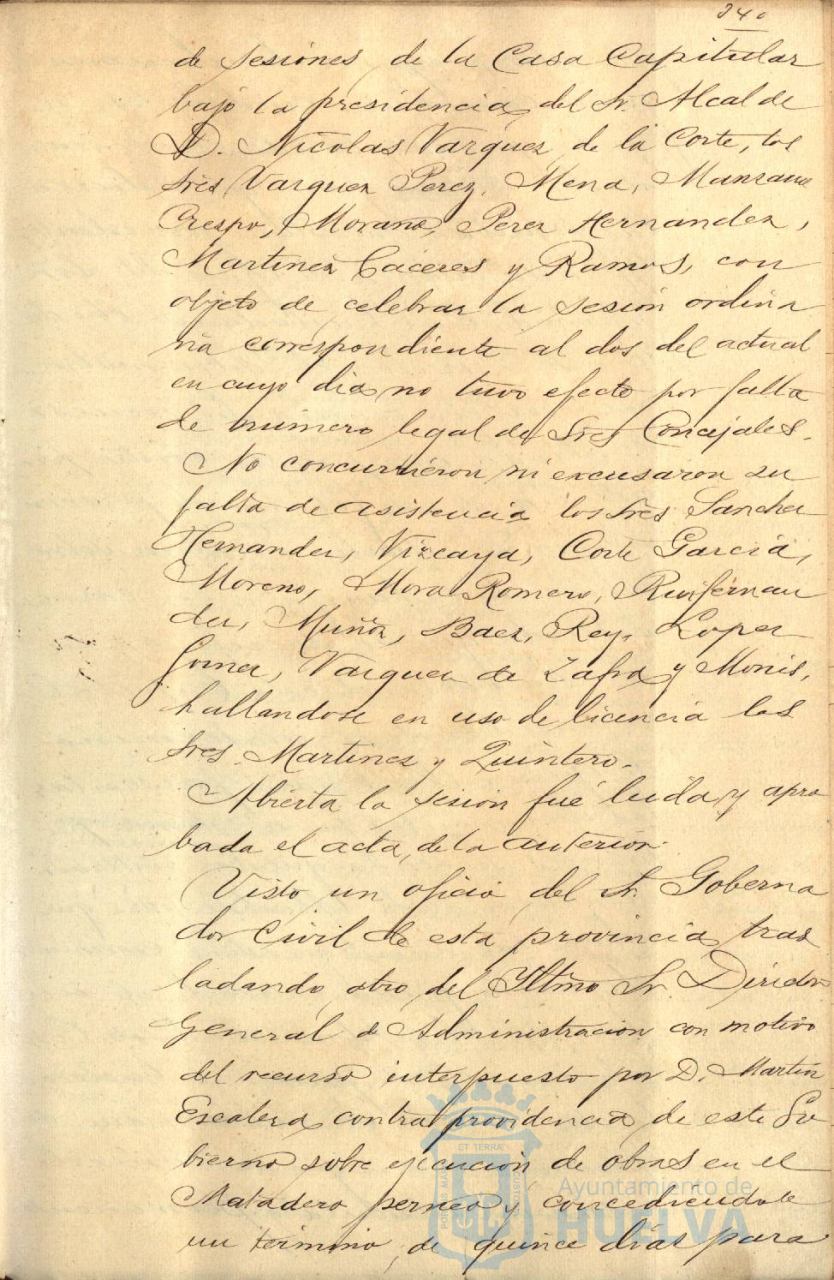 240
de sesiones de la Casa Capitular
bajo la presidencia del Sr. Alcalde
D. Nicolas Vazquez de la Corte, los
Sres Vazquez Perez, Mena, Manzano
Crespo, Morano, Perez Hernandez,
Martinez Caceres y Ramos, con
objeto de celebrar la sesión ordina
ria correspondiente al dos del actual
en cuyo dia no tuvo efecto por falta
de número legal de Sres Concejales.
No concurrieron ni excusaron su
falta de asistencia los Sres Sanchez
Hernandez, Vizcaya, Corte Garcia,
Moreno, Mora Romero, Ruifernan
dez, Muñoz, Baez, Rey, Lopez
Gomez, Vazquez de Zafra y Monis,
hallandose en uso de licencia los
Sres. Martinez y Quintero.
Abierta la sesión fué leida y apro
bada el acta de la anterior.
Visto un oficio del Sr. Goberna
dor Civil de esta provincia tras
ladando otro del Yltmo Sr. Director
General de Administracion con motivo
del recurso interpuesto por D. Martin
Escalera contra providencia de este Go
bierno sobre ejecucion de obras en el
Matadero perneo y concediendole
un termino de quince dias para
Ayuntamiento de
HUELVA